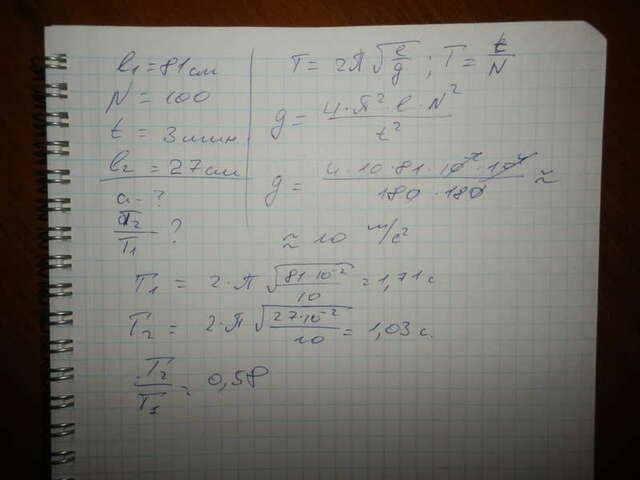 l₁ = 81 см
N = 100
t = 3 мин.
l₂ = 27 см
g - ?
T₂/T₁ ?
T = 2π√(l/g) ; T = t/N
g = (4·π²·l·N²)/t²
g = (4·10·81·10⁻²·10⁴)/(180·180) ≈
≈ 10 м/с²
T₁ = 2·π√(81·10⁻²/10) = 1,71 с
T₂ = 2·π√(27·10⁻²/10) = 1,03 с.
T₂/T₁ = 0,58